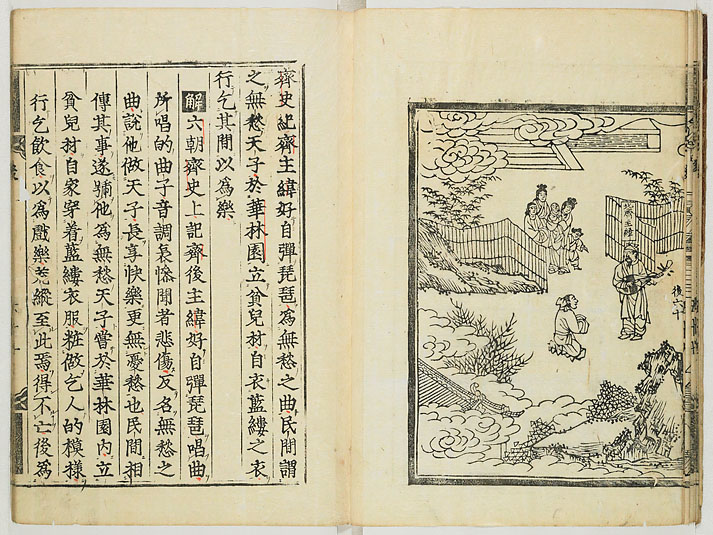 後六十
齊史紀齊主緯好自彈琵琶爲無愁之曲民間謂
之無愁天子於華林園立貧兒村自衣藍縷之衣
行乞其間以爲樂
解六朝齊史上記齊後主緯好自彈琵琶唱曲
所唱的曲子音調哀慘聞者悲傷反名無愁之
曲說他做天子長享快樂更無憂愁也民間相
傳其事遂號他爲無愁天子嘗於華林園內立
貧兒村自家穿着藍縷衣服粧做乞人的模樣
行乞飲食以爲戲樂荒縱至此焉得不亡後爲